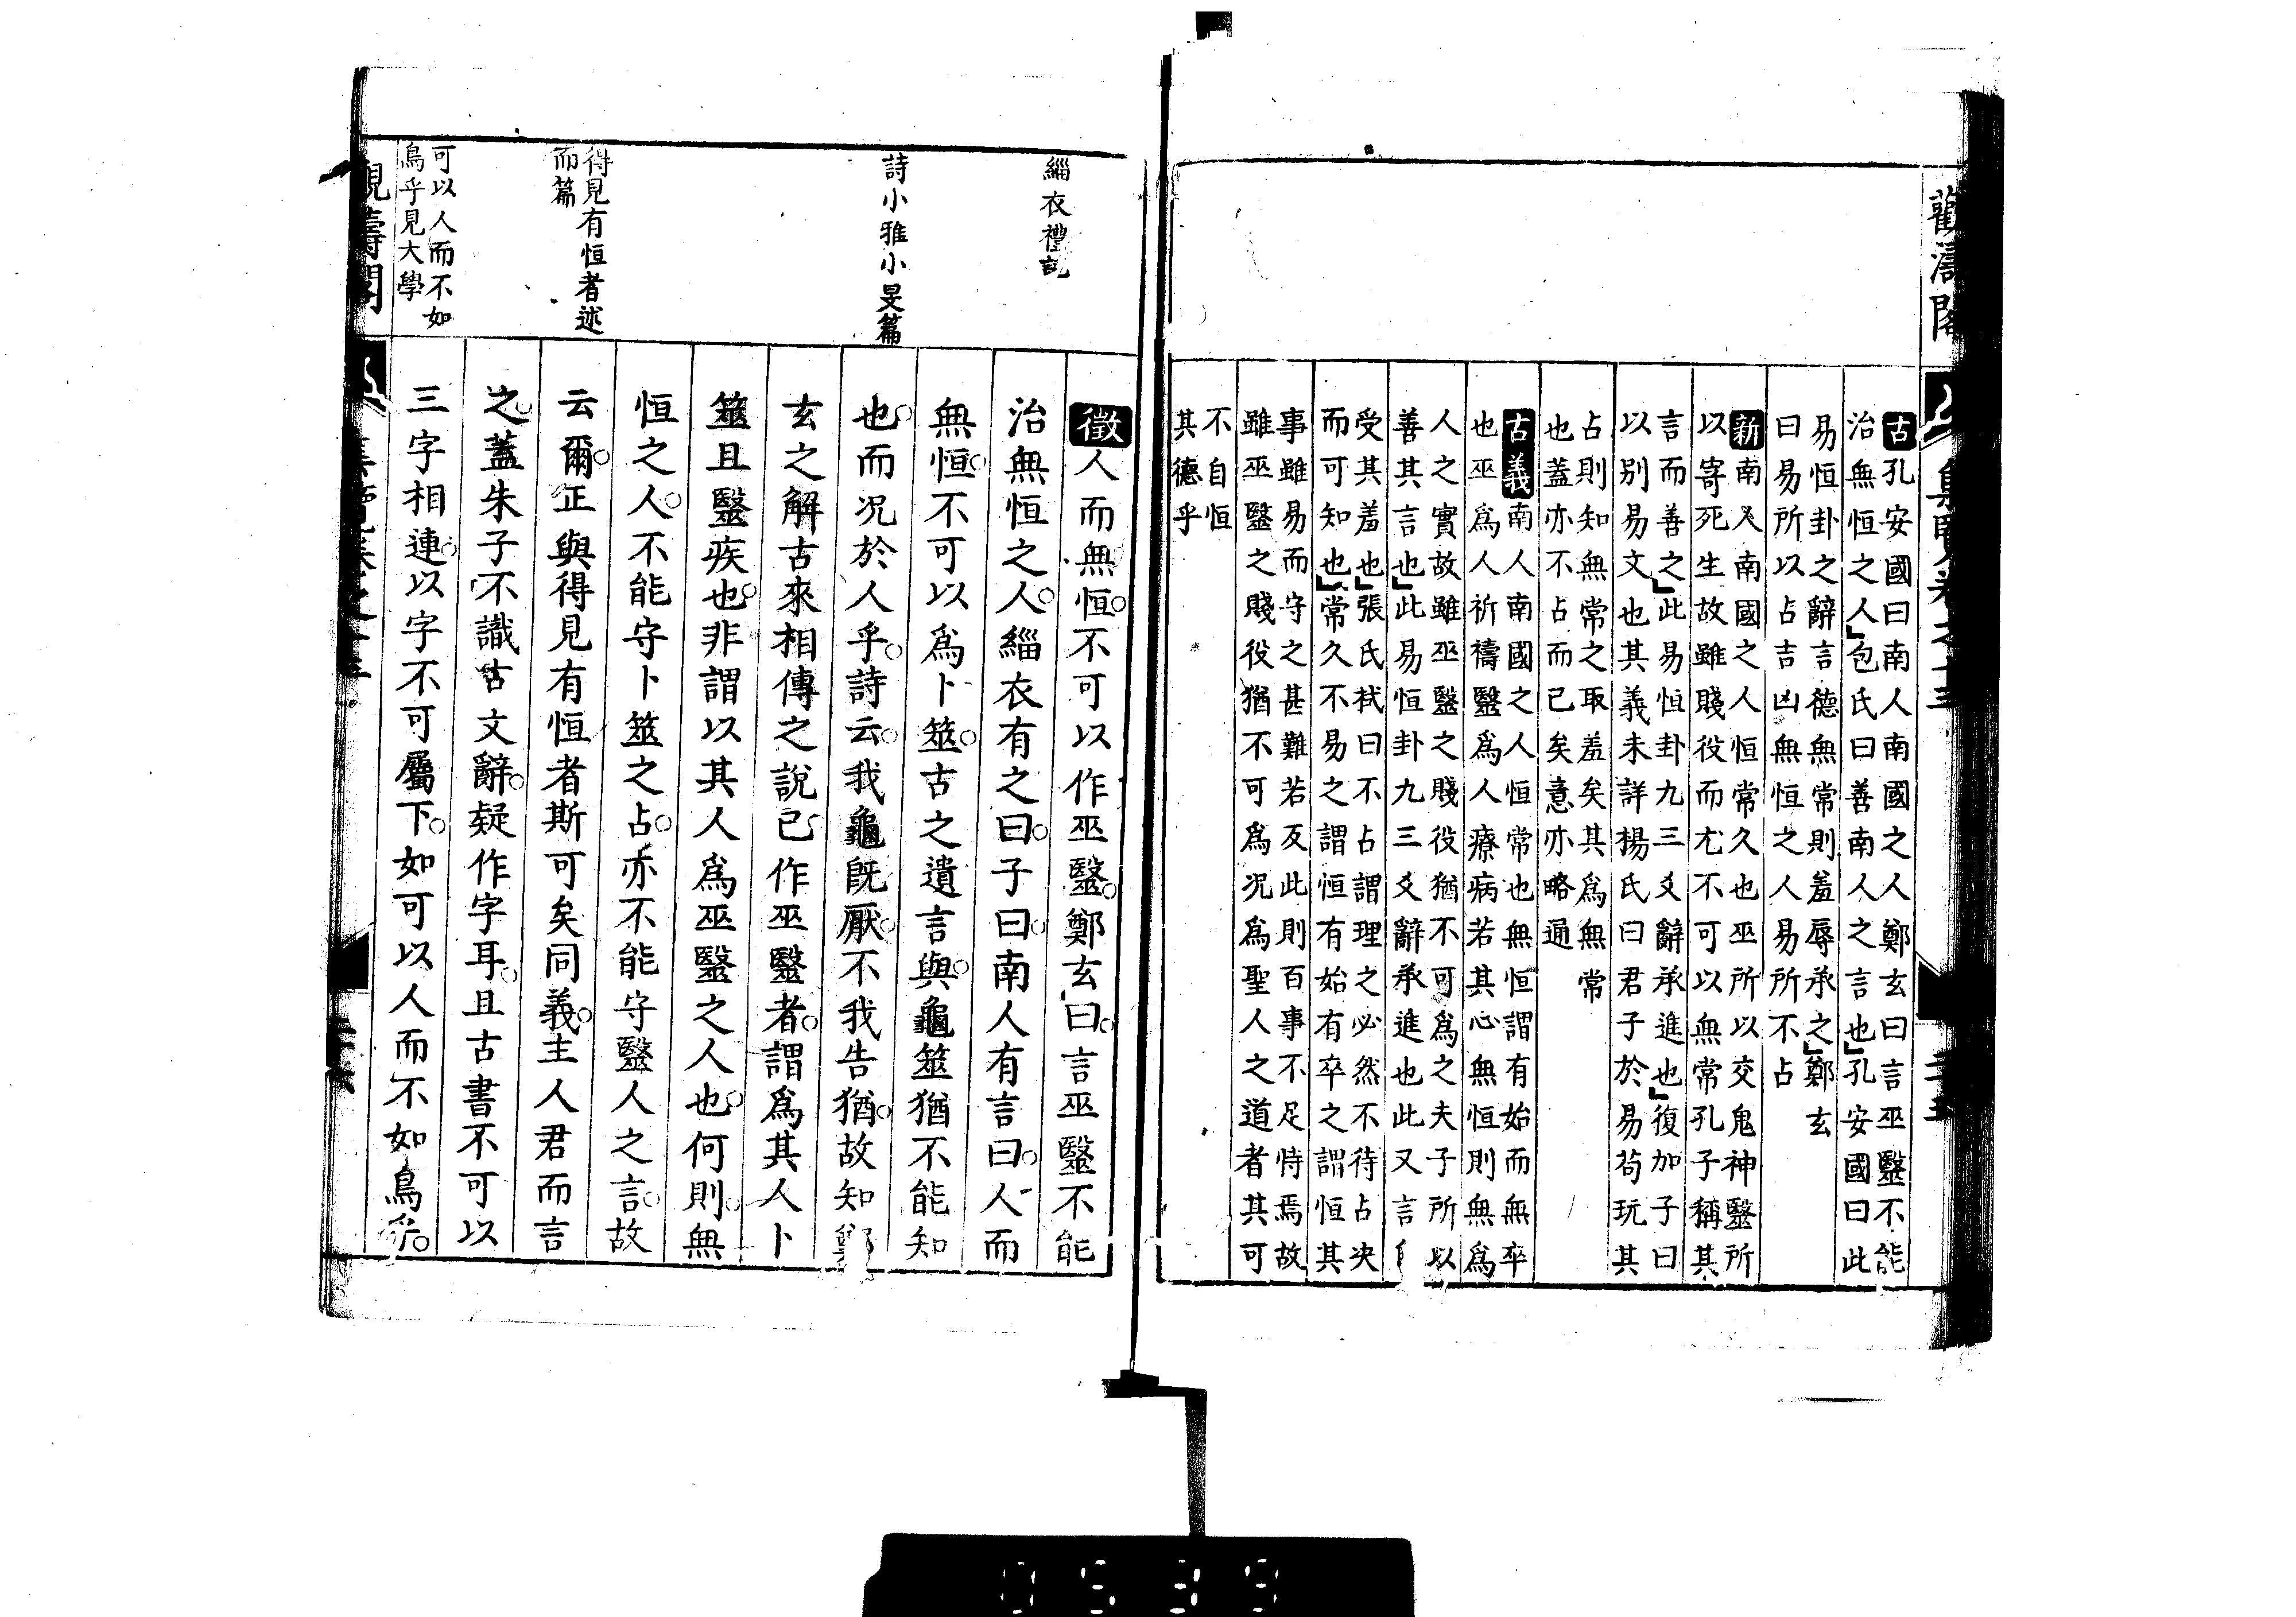 觀濤閣
古孔安國曰南人南國之人鄭玄曰言巫毉不能
治無恒之人包氏曰善南人之言也孔安國曰此
易恒卦之辭言德無常則羞辱承之鄭玄
曰易所以占吉凶無恒之人易所不占
新南人南國之人恒常久也巫所以交鬼神毉所
以寄死生故雖賤役而尤不可以無常孔子稱其
言而善之此易恒卦九三爻辭承進也復加子曰
以別易文也其義未詳楊氏曰君子於易苟玩其
占則知無常之取羞矣其爲無常
也蓋亦不占而已矣意亦略通
古義南人南國之人恒常也無恒謂有始而無卒
也巫爲人祈禱毉爲人療病若其心無恒則無爲
人之實故雖巫毉之賤役猶不可爲之夫子所以
善其言也此易恒卦九三爻辭承進也此又言
受其羞也張氏栻曰不占謂理之必然不待占决
而可知也常久不易之謂恒有始有卒之謂恒其
事雖易而守之甚難若反此則百事不足恃焉故
雖巫毉之賤役猶不可爲况爲聖人之道者其可
不自恒
其德乎
緇衣禮記
詩小雅小旻篇
得見有恒者述
而篇
可以人而不如
鳥乎見大學
徵人而無恒不可以作巫毉鄭玄曰言巫毉不能
治無恒之人緇衣有之曰子曰南人有言曰人而
無恒不可以爲卜筮古之遺言與龜筮猶不能知
也而况於人乎詩云我龜既厭不我告猶故知鄭
玄之解古來相傳之說已作巫毉者謂爲其人卜
筮且毉疾也非謂以其人爲巫毉之人也何則無
恒之人不能守卜筮之占亦不能守毉人之言故
云爾正與得見有恒者斯可矣同義主人君而言
之蓋朱子不識古文辭疑作字耳且古書不可以
三字相連以字不可屬下如可以人而不如鳥乎
觀濤閣